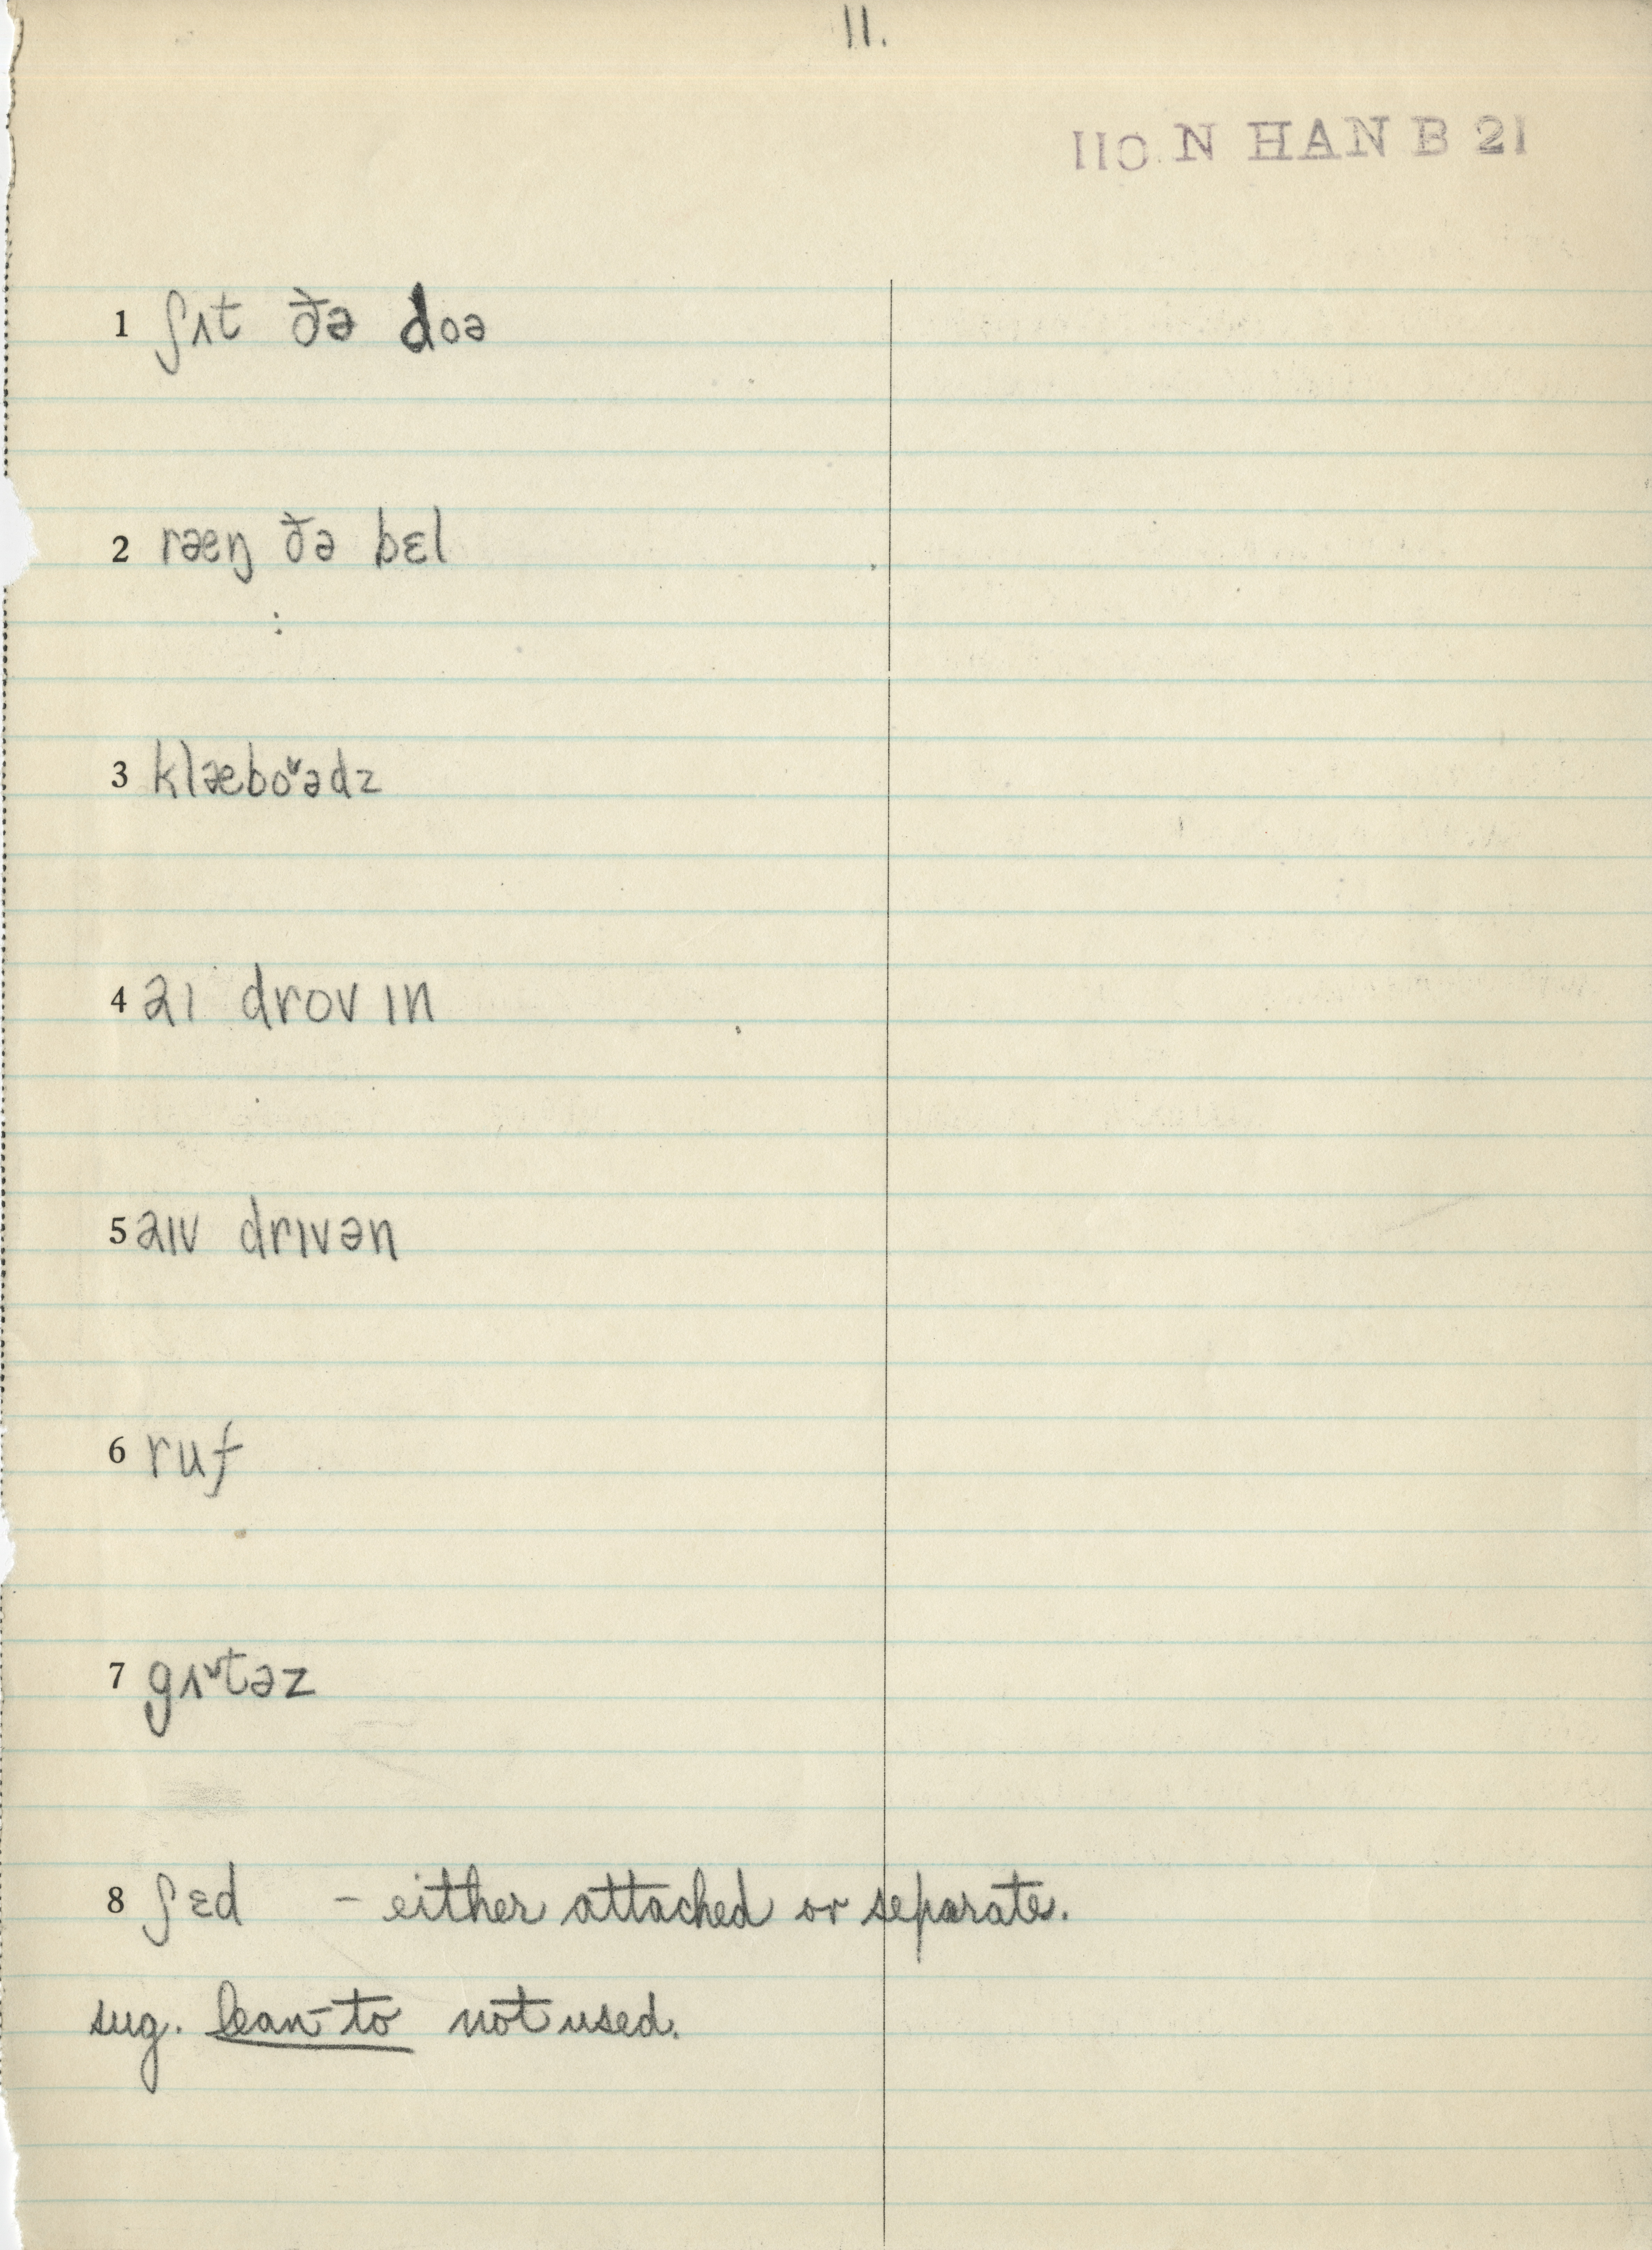 11.
110 N HAN B 21
1 ʃʌt ðə doə
2 ræŋ ðə bɛl
3 klæbo˅ədz
4 aɪ drov ɪn
5 aɪv drɪvən
6 ruf
7 gʌ˅təz
8 ʃɛd – either attached or separate.
sug. lean-to not used.